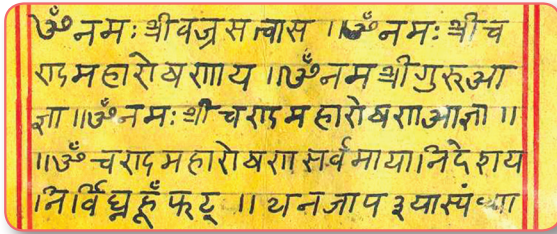 ॐ नमः श्री वज्रसत्वास ॥ ॐ नमः श्री च
राद महारोषरााय ॥ ॐ नम श्री गुरुआ
ज्ञा ॥ ॐ नमः श्री चराद महारोषराा आज्ञा ॥
॥ ॐ चराद महारोषराा सर्वमाया निदेशय
निर्विघ्न हूँ फट् ॥ थन जाप ३